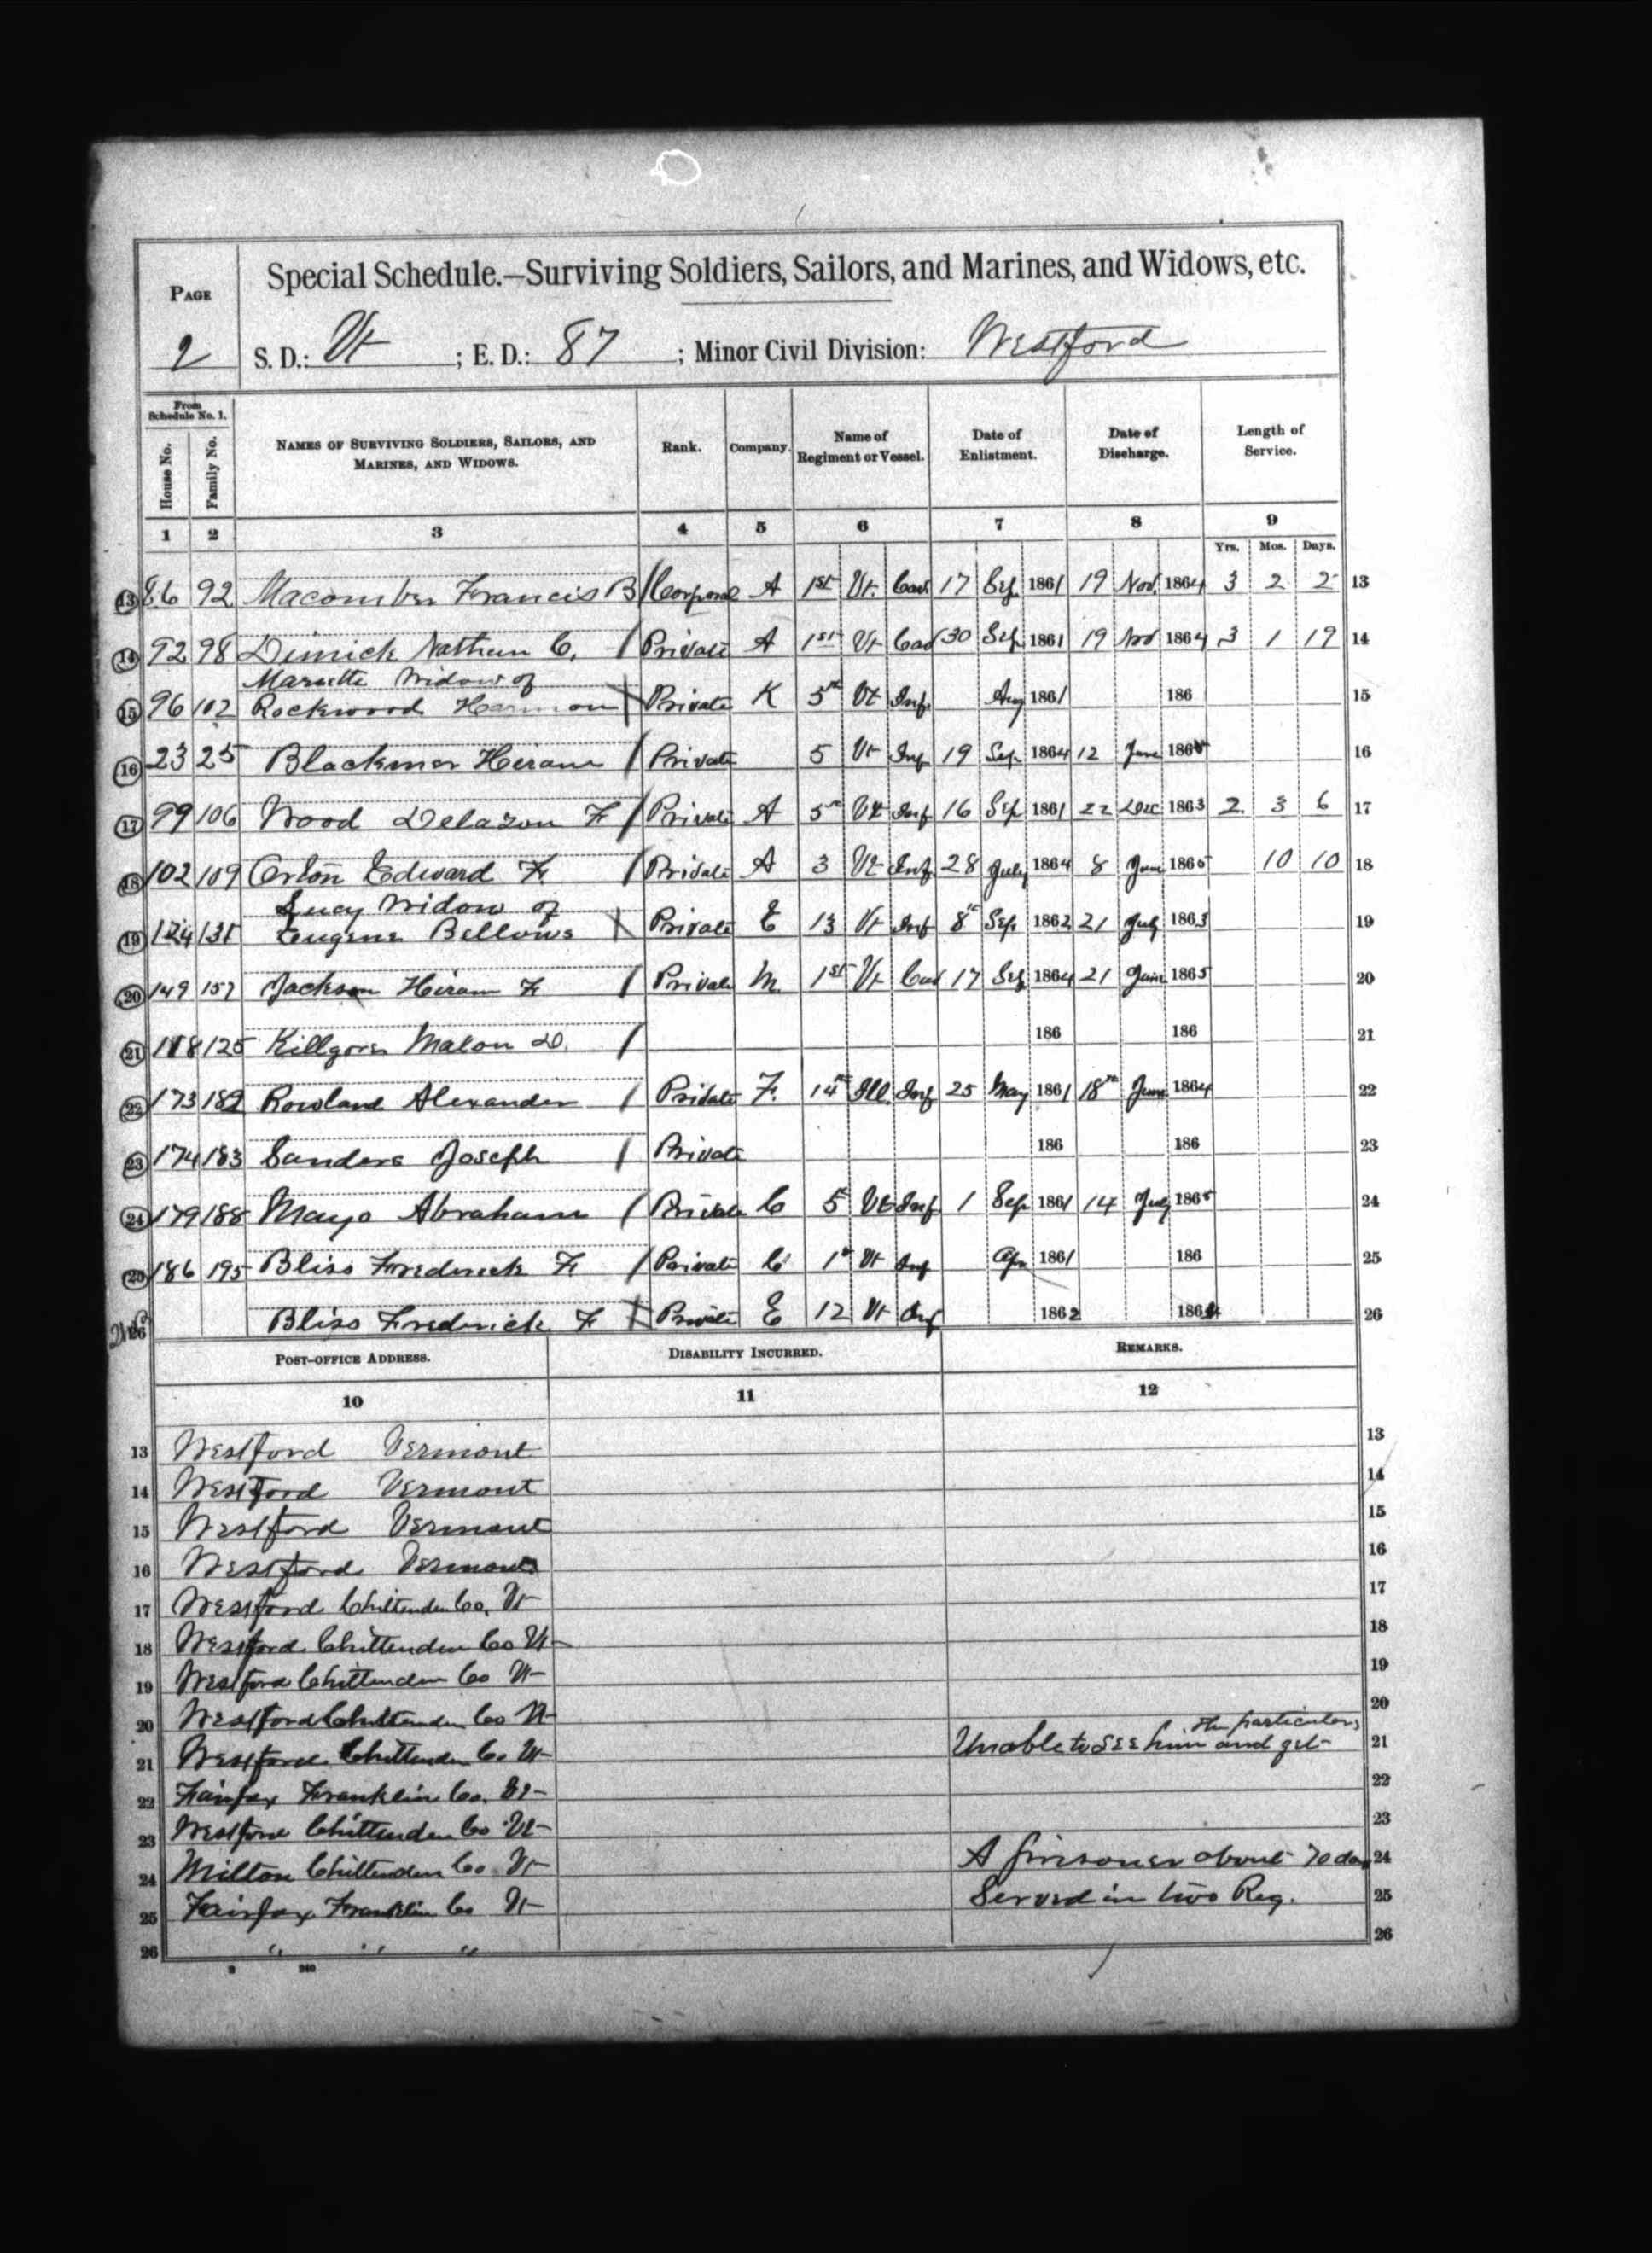 PAGE
2
Special Schedule.—Surviving Soldiers, Sailors, and Marines, and Widows, etc.
S. D.: Vt ; E. D.: 87 ; Minor Civil Division: Westford
From Schedule No. 1.
House No. Family No. NAMES OF SURVIVING SOLDIERS, SAILORS, AND MARINES, AND WIDOWS. Rank. Company. Name of Regiment or Vessel. Date of Enlistment. Date of Discharge. Length of Service.
1 2 3 4 5 6 7 8 9
Yrs. Mos. Days.
13 86 92 Macomber Francis B / Corporal A 1st Vt. Cav 17 Sep. 1861 19 Nov. 1864 3 2 2 13
14 92 98 Dimick Nathan C. / Private A 1st Vt Cav 30 Sep 1861 19 Nov 1864 3 1 19 14
Widow of
15 96 102 Rockwood Harmon Private K 5th Vt Inf. Aug 1861 186 15
16 23 25 Blackmer Hiram / Private 5 Vt Inf 19 Sep 1864 12 June 1865 16
17 99 106 Wood Delazon F / Private A 5th Vt Inf 16 Sep 1861 22 Dec 1863 2 3 6 17
18 102 109 Orton Edward F. / Private A 3 Vt Inf 28 July 1864 8 June 1865 10 10 18
Lucy Widow of
19 124 131 Eugene Bellows \ Private E 13 Vt Inf 8th Sep. 1862 21 July 1863 19
20 149 157 Jackson Hiram F / Private M. 1st Vt Cav 17 Sep 1864 21 June 1865 20
21 118 125 Killgore Malon D. / 186 186 21
22 173 182 Rowland Alexander / Private F. 14th Ill. Inf 25 May 1861 18th June 1864 22
23 174 183 Sanders Joseph / Private 186 186 23
24 179 188 Mayo Abraham / Private C 5th Vt Inf 1 Sep 1861 14 July 1865 24
25 186 195 Bliss Frederick F / Private C 1st Vt Inf Ap. 1861 186 25
26 Bliss Frederick F Private E 12 Vt Inf 1862 186 26
POST-OFFICE ADDRESS. DISABILITY INCURRED. REMARKS.
10 11 12
13 Westford Vermont 13
14 Westford Vermont 14
15 Westford Vermont 15
16 Westford Vermont 16
17 Westford Chittenden Co. Vt 17
18 Westford Chittenden Co Vt 18
19 Westford Chittenden Co Vt 19
20 Westford Chittenden Co Vt 20
the particulars
21 Westford Chittenden Co Vt Unable to see him and get 21
22 Fairfax Franklin Co. Vt 22
23 Westford Chittenden Co Vt 23
24 Milton Chittenden Co. Vt A prisoner about 70 days 24
25 Fairfax Franklin Co Vt Served in two Reg. 25
26 " " " 26